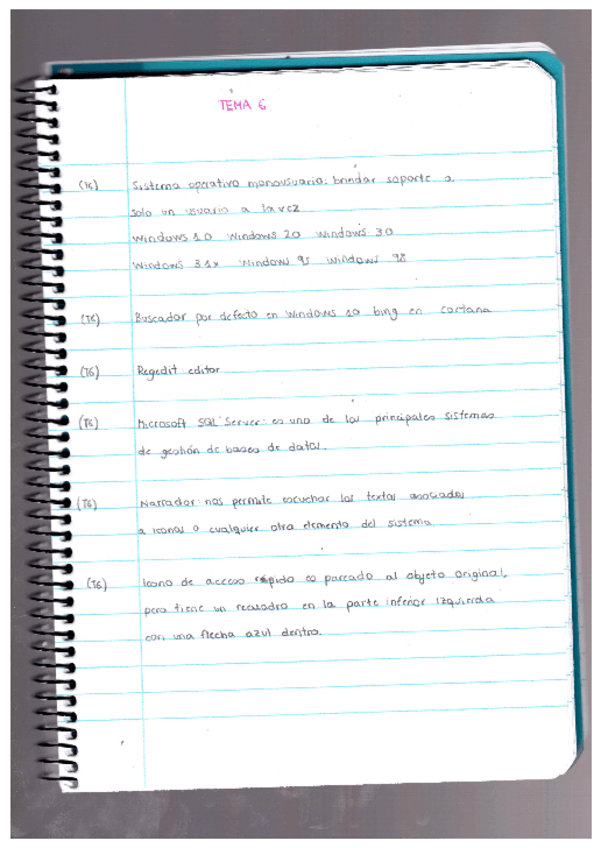 TEMA 6
(T6) Sistema operativo monousuario: brindar soporte a
solo un usuario a la vez
Windows 1.0 Windows 2.0 Windows 3.0
Windows 3.1x Window 95 Window 98
(T6) Buscador por defecto en Windows 10 bing en cortana
(T6) Regedit editor
(T6) Microsoft SQL Server: es uno de los principales sistemas
de gestión de bases de datos.
(T6) Narrador: nos permite escuchar los textos asociados
a iconos o cualquier otra elemento del sistema
(T6) Icono de acceso rápido es parecido al objeto original,
pero tiene un recuadro en la parte inferior izquierda
con una flecha azul dentro.